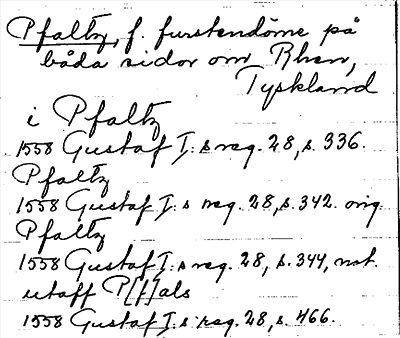 Pfaltz, f. furstendöme på
båda sidor om Rhen,
Tyskland
i Pfaltz
1558 Gustaf I:s reg. 28, s. 336.
Pfaltz
1558 Gustaf I:s reg. 28, s. 342. orig.
Pfaltz
1558 Gustaf I:s reg. 28, s. 344, not.
utaff P[f]als
1558 Gustaf I:s reg. 28, s. 466.